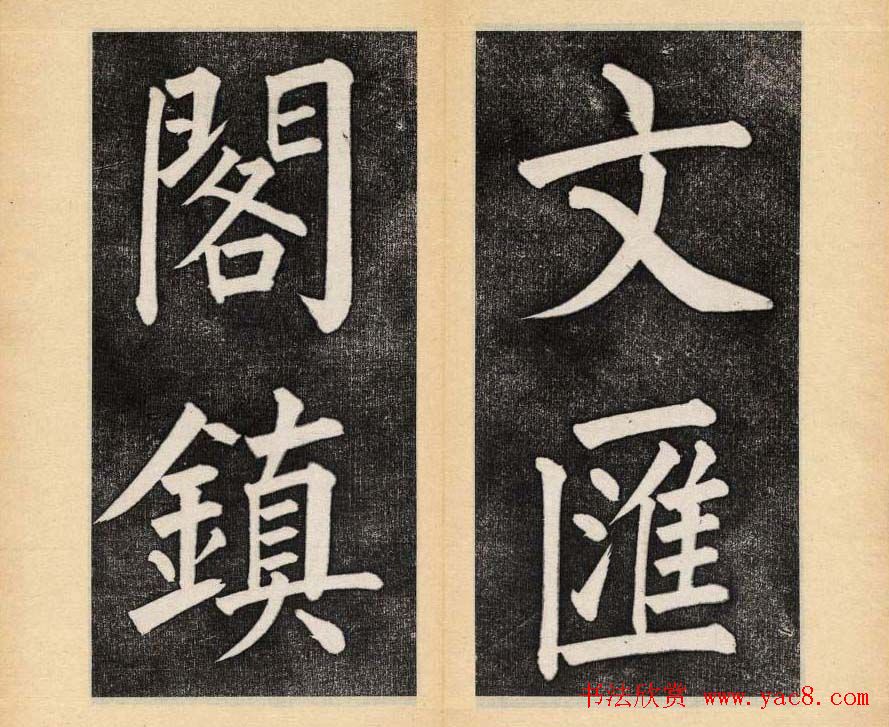 文匯
閣鎮
书法欣赏 www.yac8.com